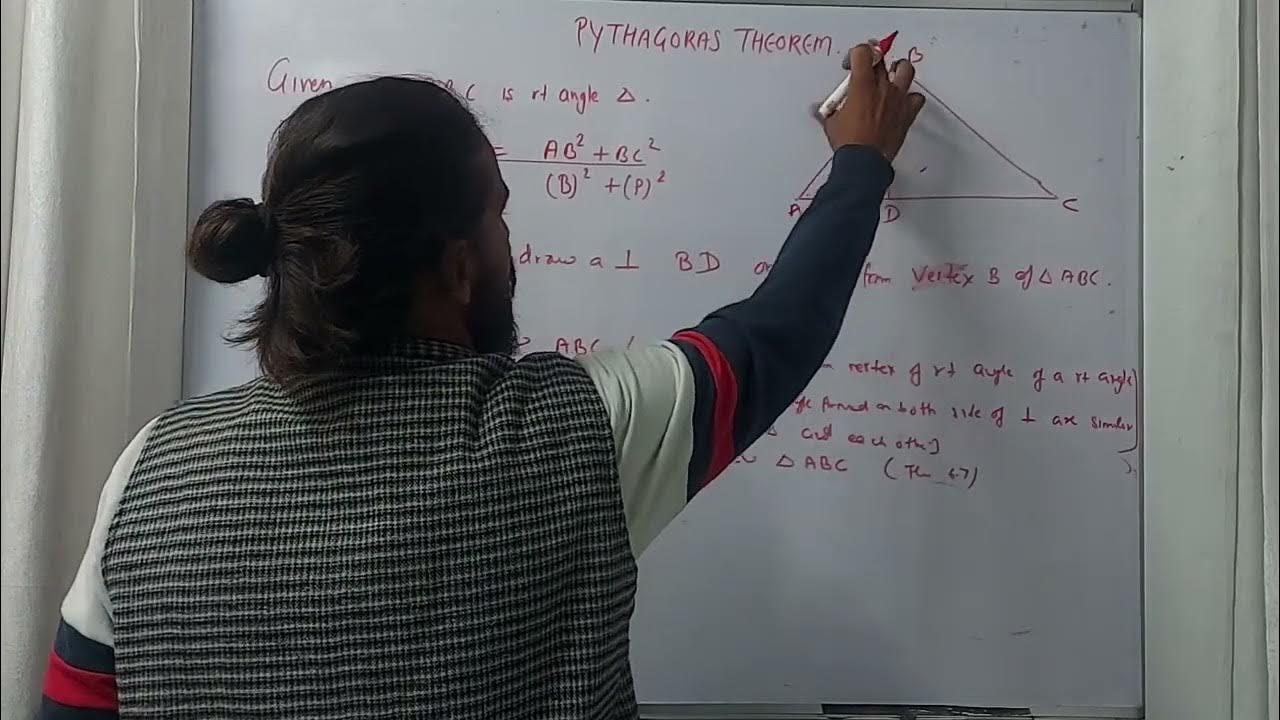 PYTHAGORAS THEOREM.
B
Given BC is rt angle △.
= AB² + BC²
(B)² + (P)²
A D C
draw a ⊥ BD from Vertex B of △ ABC.
ABC
vertex of rt angle of a rt angle
formed on both side of ⊥ are similar
△ and each other]
△ ABC (Th 6.7)